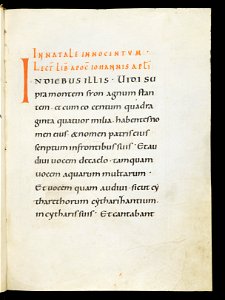 IN NATALE INNOCENTUM.
LECT LIB APOC IOHANNIS APLI
IN DIEBUS ILLIS. UIDI SU
pra montem sion agnum stan
tem. et cum eo centum quadra
ginta quatuor milia. habentes no
men eius & nomen patris eius
scriptum in frontibus suis. Et au
diui uocem de caelo. tamquam
uocem aquarum multarum.
Et uocem quam audiui. sicut cy
tharedorum cytharizantium
in cytharis suis. Et cantabant